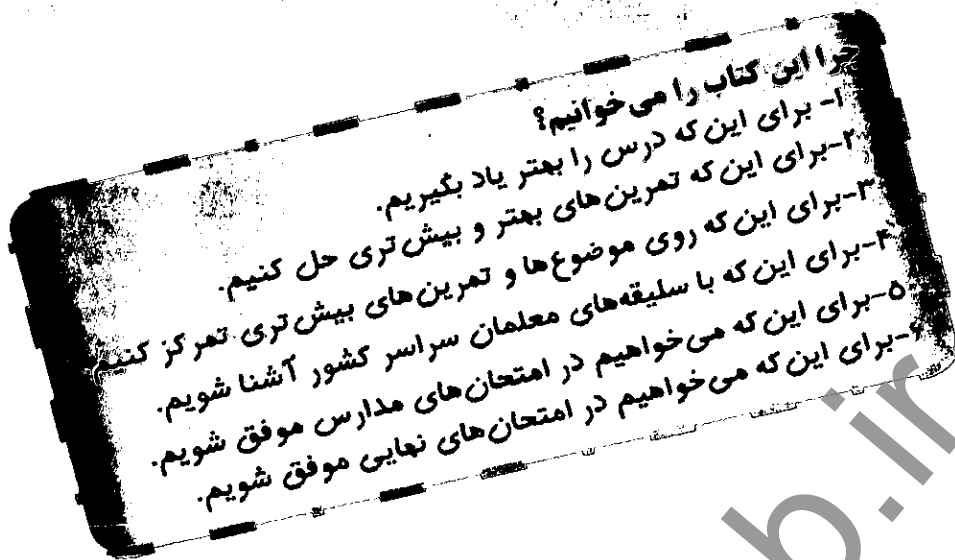 چرا این کتاب را می‌خوانیم؟
۱- برای این که درس را بهتر یاد بگیریم.
۲-برای این که تمرین‌های بهتر و بیش‌تری حل کنیم.
۳-برای این که روی موضوع‌ها و تمرین‌های بیش‌تری تمرکز کنیم.
۴-برای این که با سلیقه‌های معلمان سراسر کشور آشنا شویم.
۵-برای این که می‌خواهیم در امتحان‌های مدارس موفق شویم.
۶-برای این که می‌خواهیم در امتحان‌های نهایی موفق شویم.
b.ir